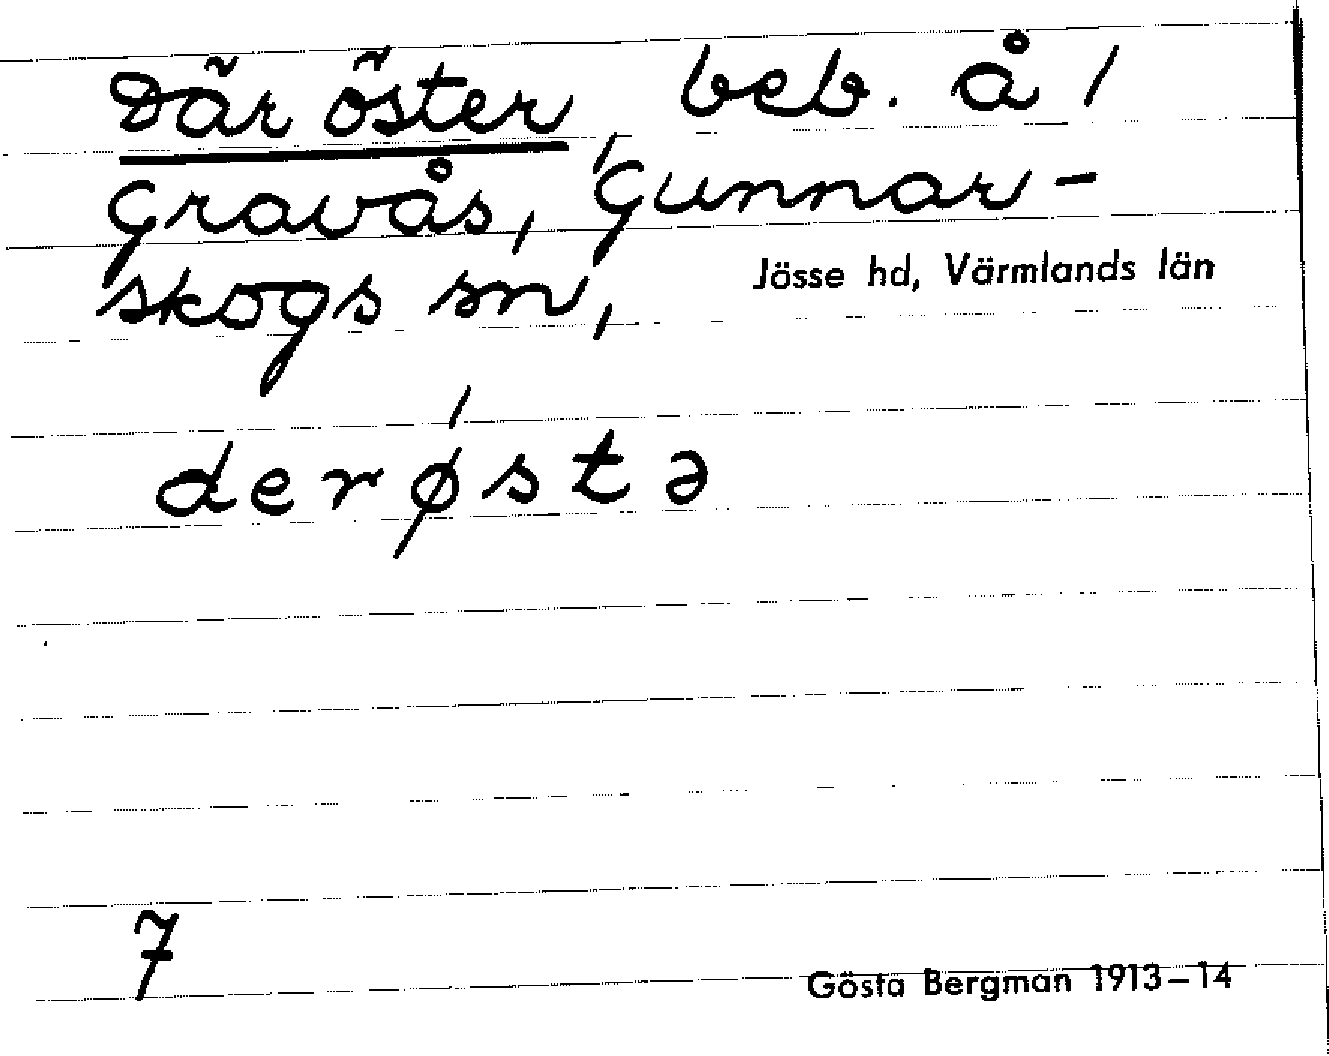 Där öster, beb. å /
Gravås, Gunnar-
skogs sn, Jösse hd, Värmlands län
derǿstə
7
Gösta Bergman 1913–14